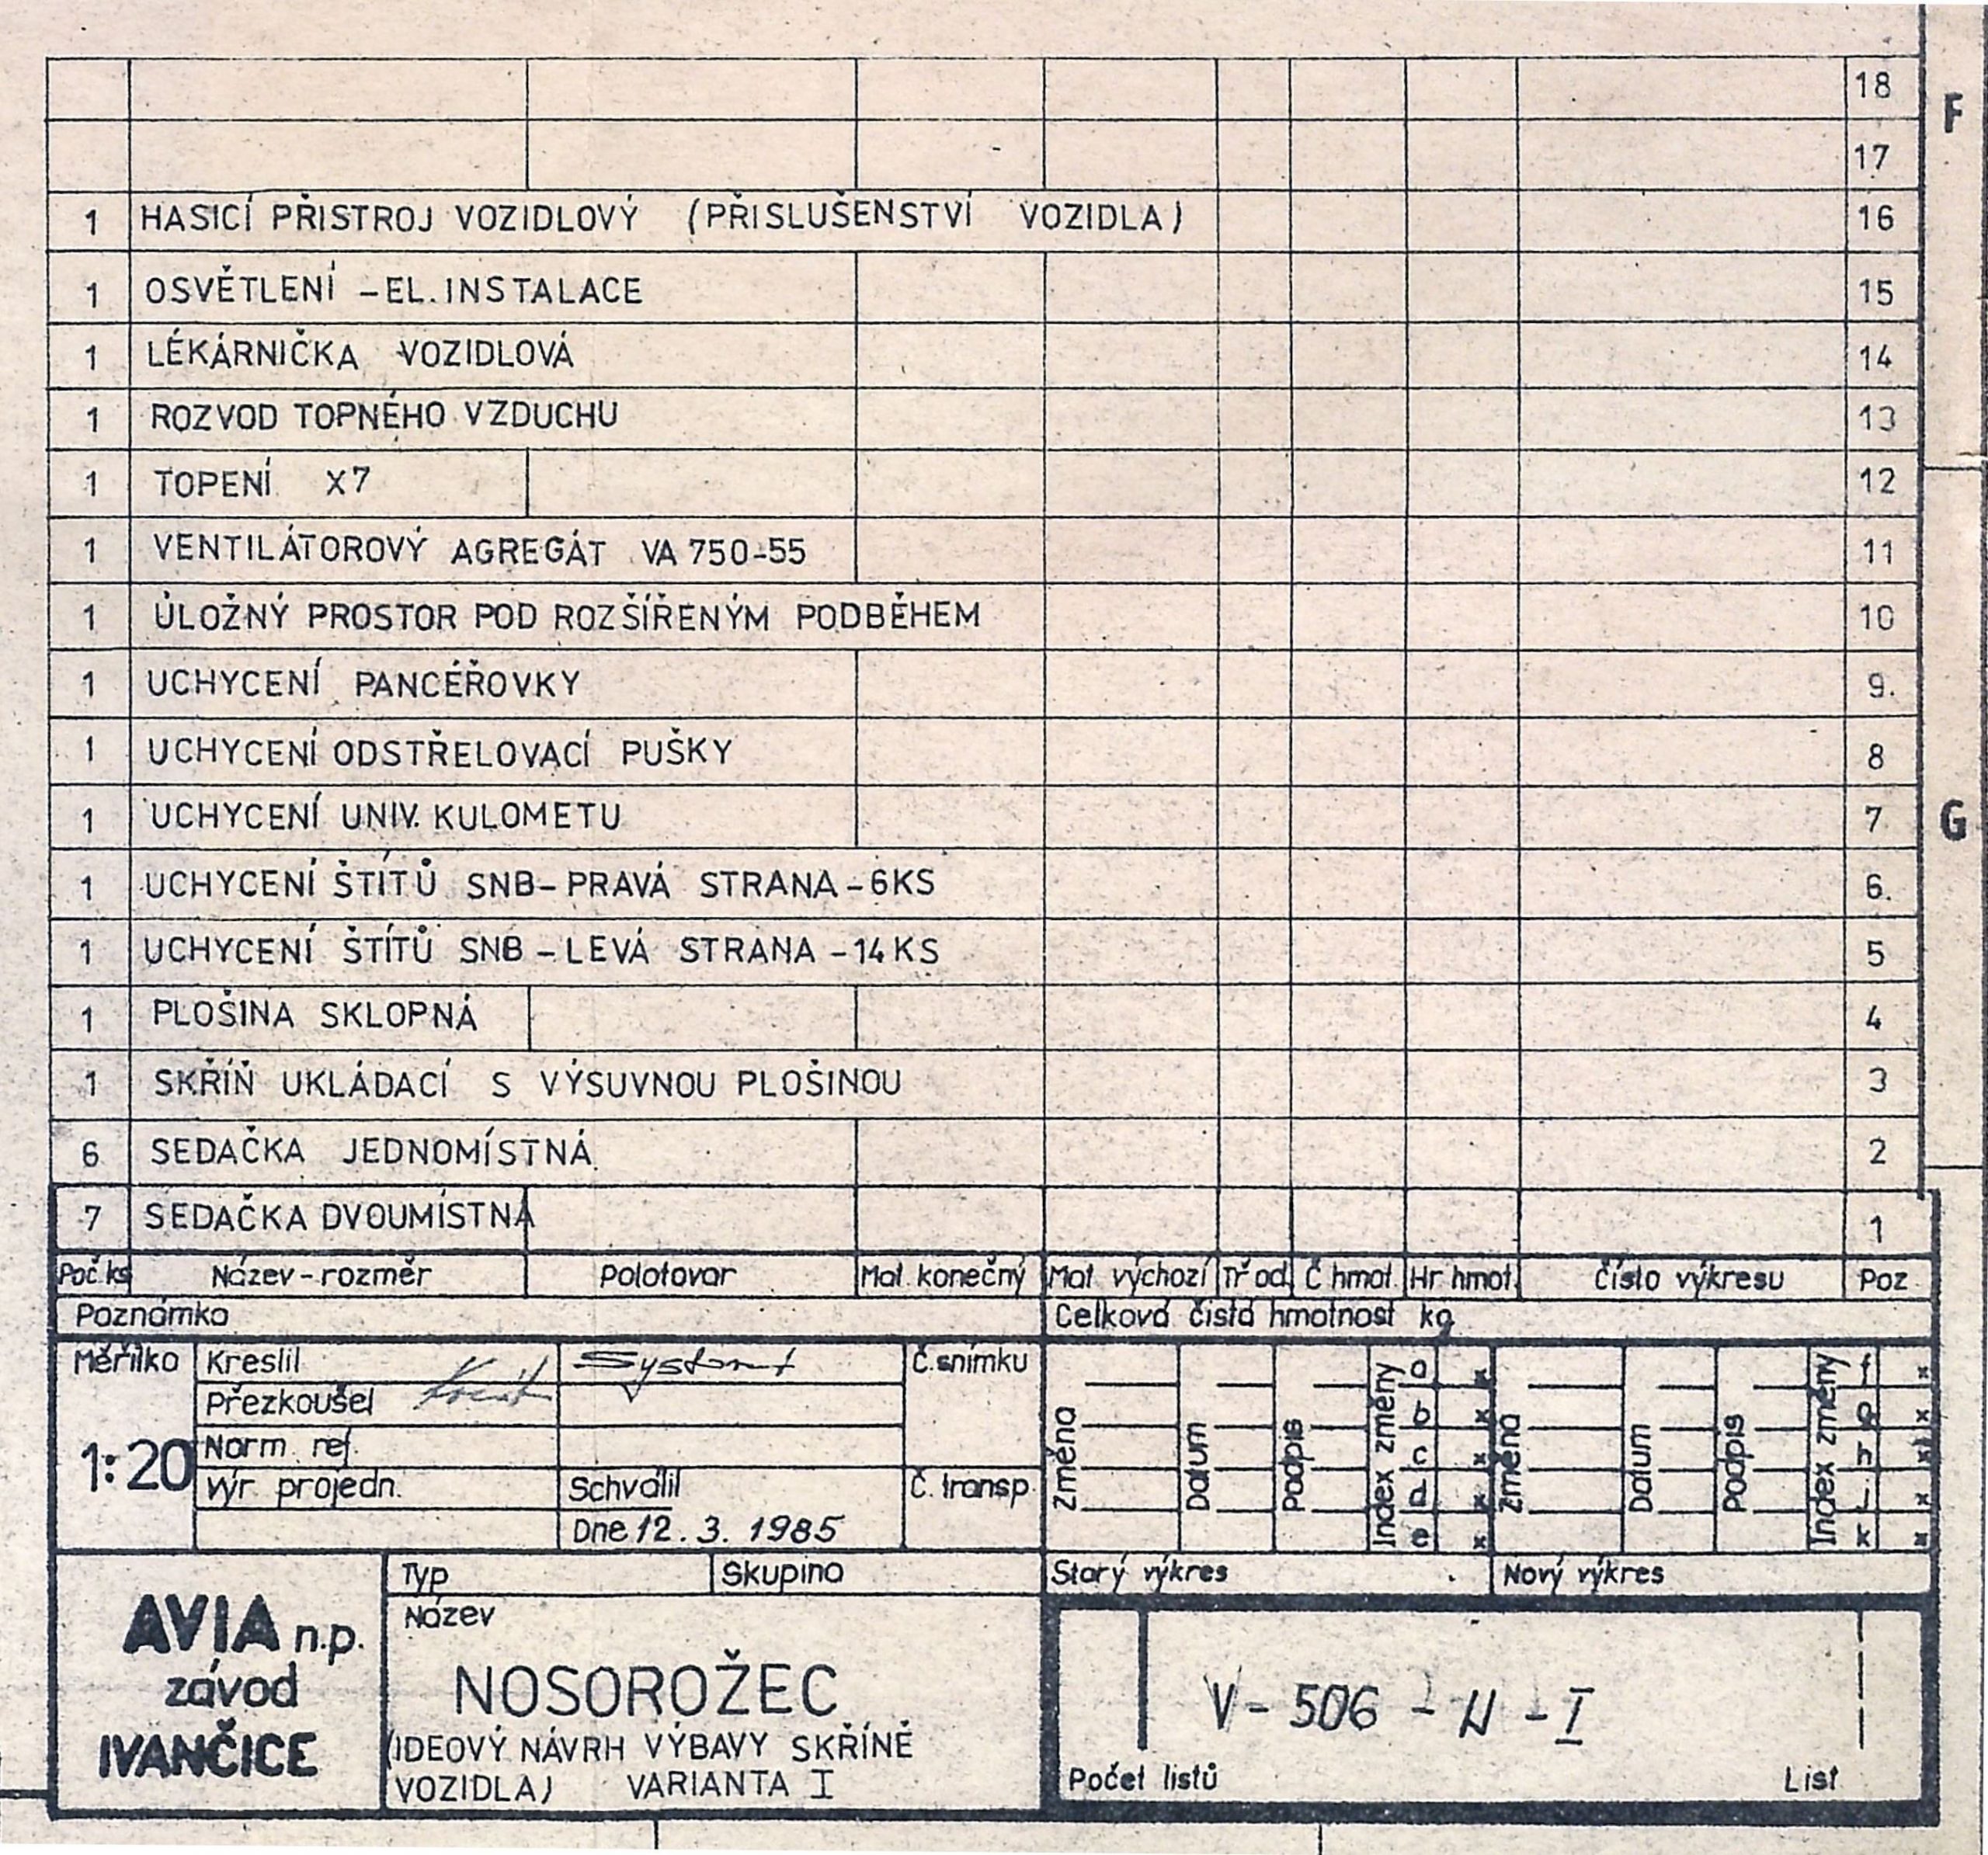 18
F
17
1 HASICÍ PŘISTROJ VOZIDLOVÝ (PŘISLUŠENSTVÍ VOZIDLA) 16
1 OSVĚTLENÍ - EL. INSTALACE 15
1 LÉKÁRNIČKA VOZIDLOVÁ 14
1 ROZVOD TOPNÉHO VZDUCHU 13
1 TOPENÍ X7 12
1 VENTILÁTOROVÝ AGREGÁT VA 750-55 11
1 ÚLOŽNÝ PROSTOR POD ROZŠÍŘENÝM PODBĚHEM 10
1 UCHYCENÍ PANCÉŘOVKY 9.
1 UCHYCENÍ ODSTŘELOVACÍ PUŠKY 8
1 UCHYCENÍ UNIV. KULOMETU 7
G
1 UCHYCENÍ ŠTÍTŮ SNB - PRAVÁ STRANA - 6KS 6.
1 UCHYCENÍ ŠTÍTŮ SNB - LEVÁ STRANA - 14 KS 5
1 PLOŠINA SKLOPNÁ 4
1 SKŘÍŇ UKLÁDACÍ S VÝSUVNOU PLOŠINOU 3
6 SEDAČKA JEDNOMÍSTNÁ 2
7 SEDAČKA DVOUMÍSTNÁ 1
Poč. ks Název - rozměr Polotovar Mat. konečný Mat. výchozí Tř od. Č hmot. Hr hmot. Číslo výkresu Poz
Poznámka Celková čistá hmotnost kg
Měřítko Kreslil Č. snímku
Přezkoušel
1:20 Norm. ref.
Výr. projedn. Schválil Č. transp.
Dne 12. 3. 1985
Změna Datum Podpis Index změny a b c d e x x x x x
Změna Datum Podpis Index změny f g h i k x x x x x
Typ Skupina Starý výkres Nový výkres
AVIA n.p.
závod
IVANČICE
Název
NOSOROŽEC
(IDEOVÝ NÁVRH VÝBAVY SKŘÍNĚ
VOZIDLA) VARIANTA I
V - 506 - N - I
Počet listů List